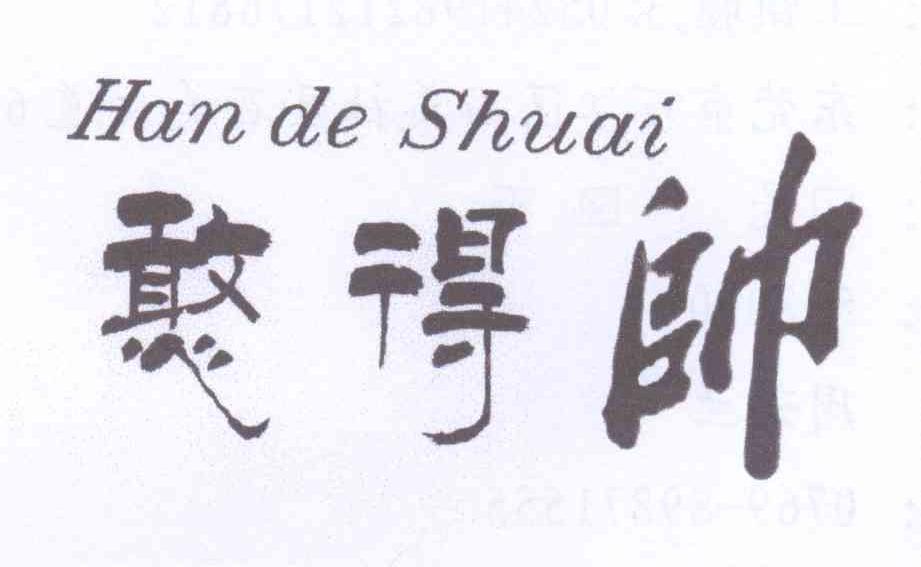 Han de Shuai
憨得帥